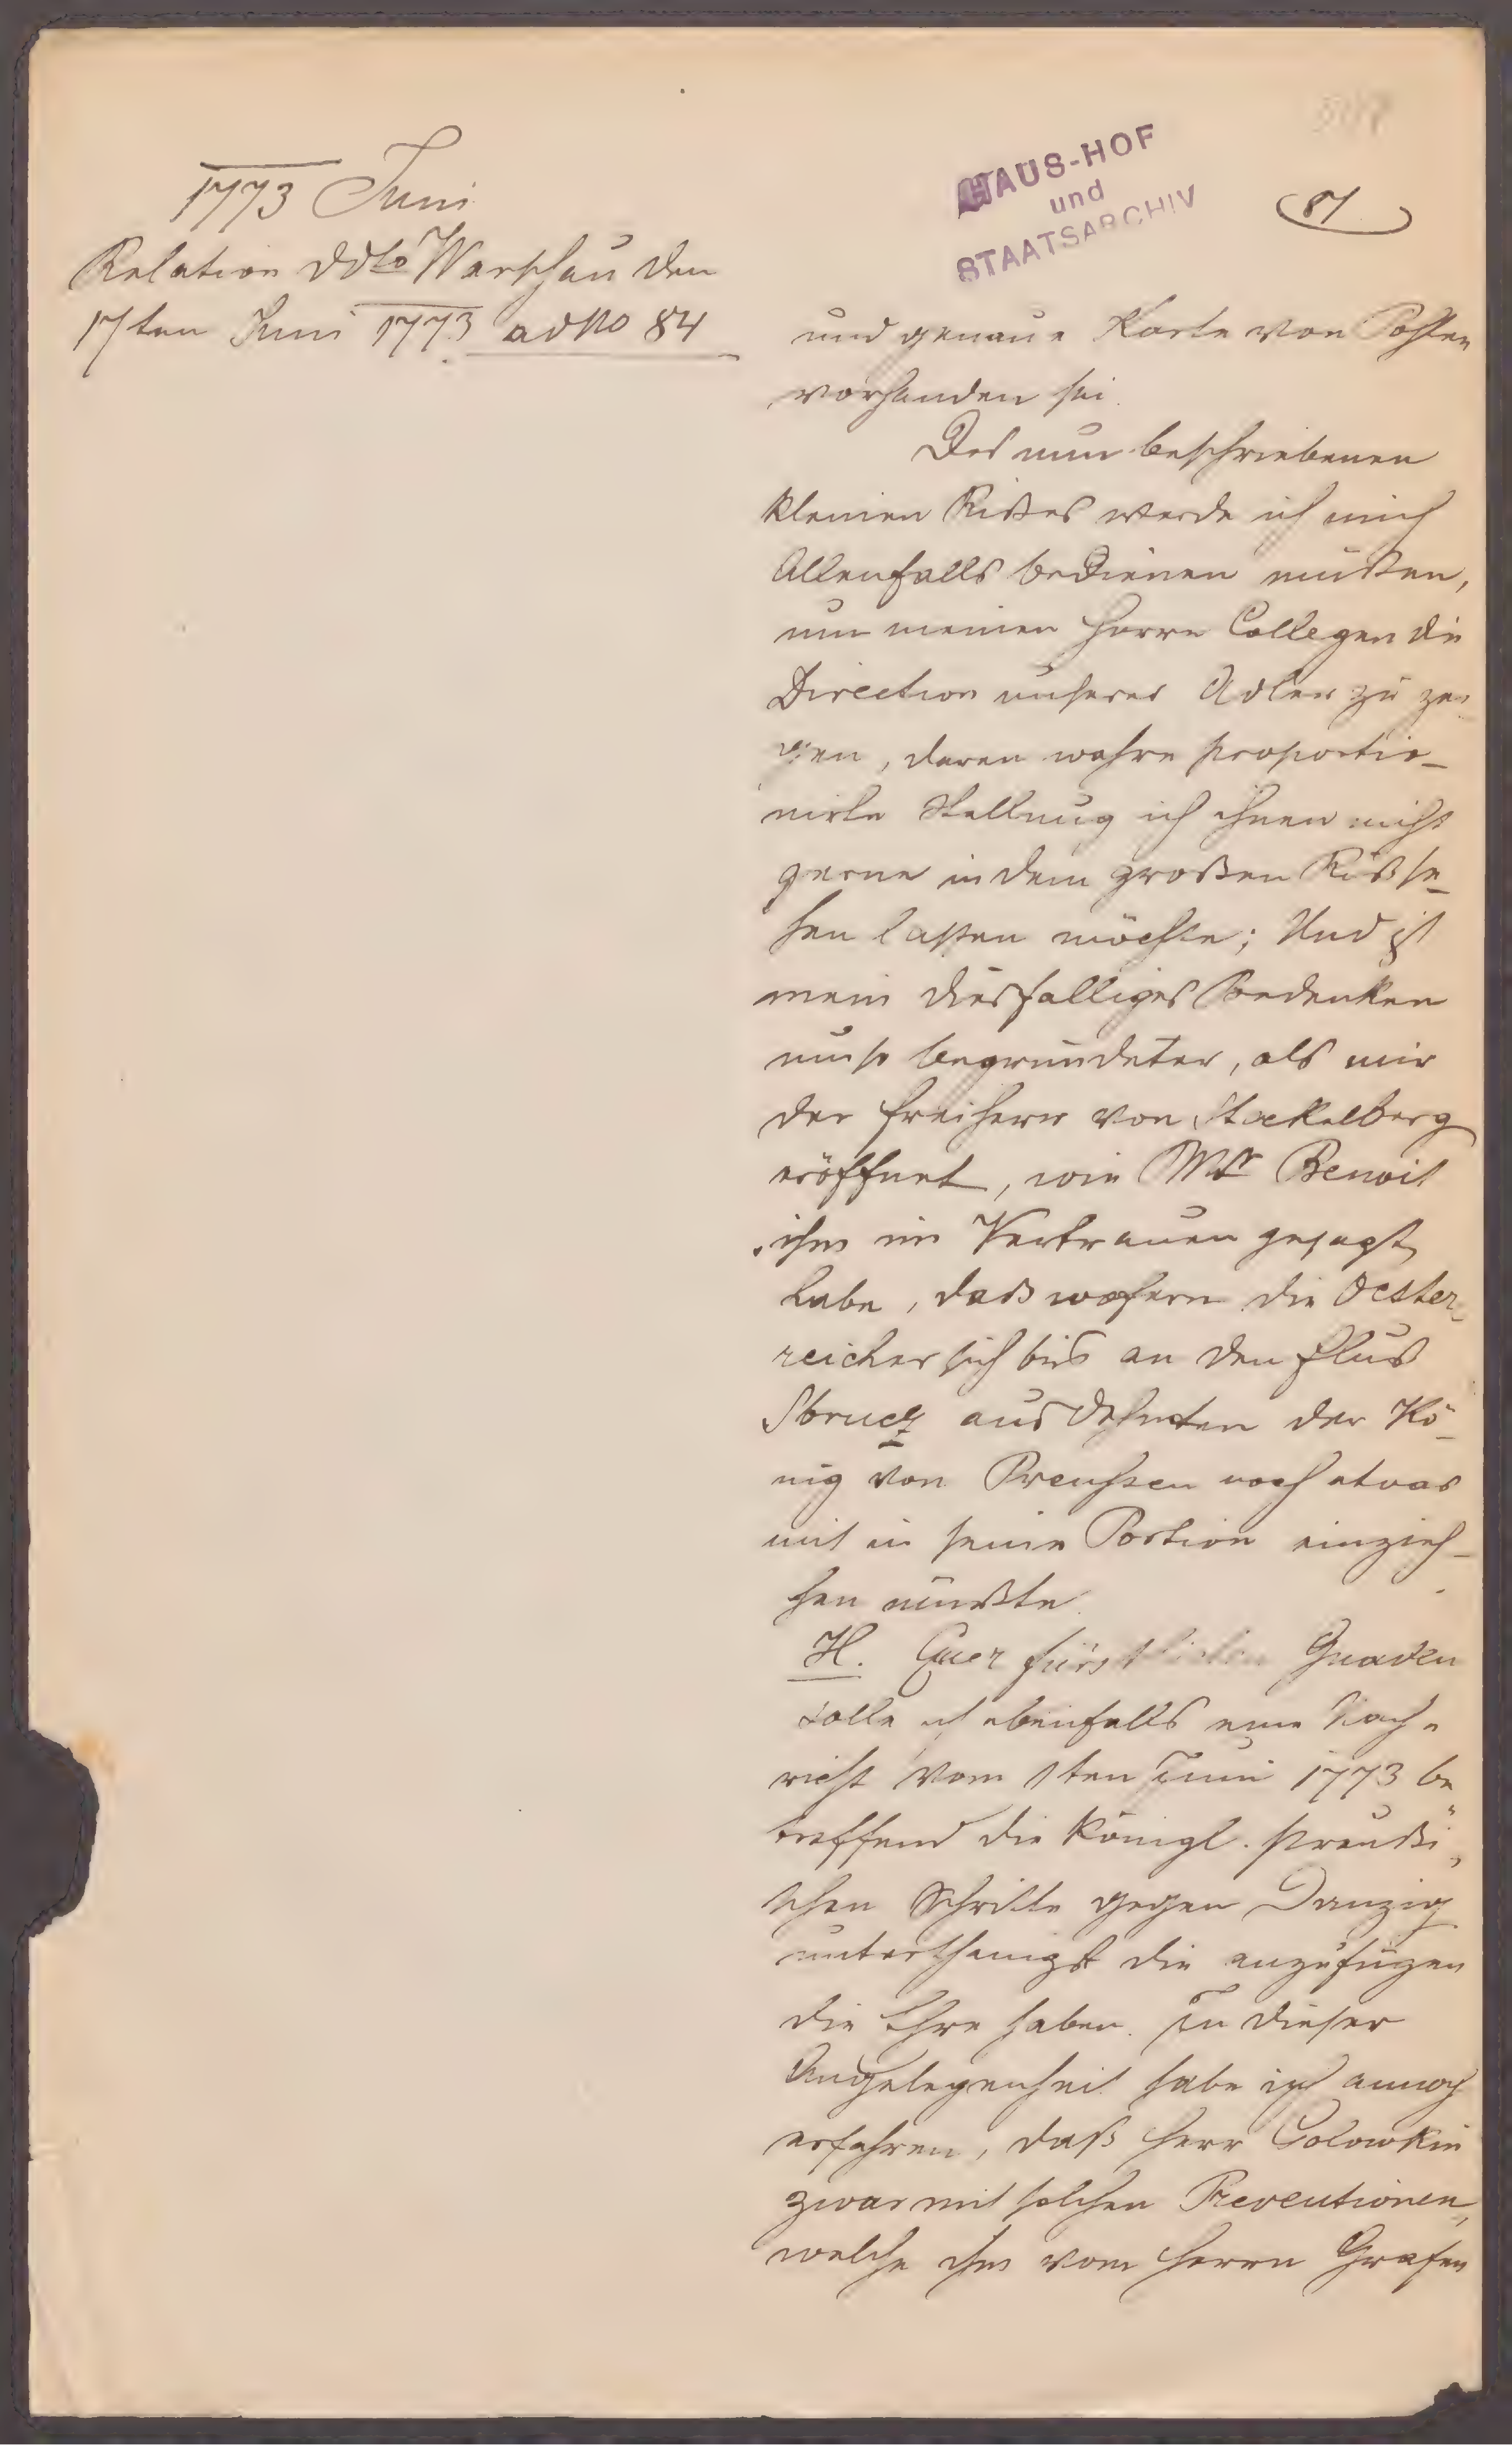 1773 Juni
Relation ddto Warschau den
17ten Juni 1773 ad No 84
HAUS-HOF
und
STAATSARCHIV
81
und genaue Karte von Pohlen
vorhanden sei.
Des nun beschriebenen
kleinen Rißes werde ich mich
Allenfalls bedienen müßen,
um meinen Herrn Collegen die
Direction unserer Adler zu zei
gen, deren wahre proportio-
nirte Stellung ich ihnen nicht
gerne in dem großen Riß se-
hen laßen möchte; Und ist
mein diesfälliges Bedenken
umso begründeter, als mir
der Freiherr von Stackelberg
eröffnet, wie Mr Benoit
ihm im Vertrauen gesagt
habe, daß wofern die Oester
reicher sich bis an den Fluß
Sbrucz ausdehnten der Kö-
nig von Preußen noch etwas
mit in seine Portion einzieh-
hen müßte.
H. Euer fürstlichen Gnaden
solle ich ebenfalls eine Nach-
richt vom 1ten Juni 1773 be
treffend die Königl. preußi
schen Schritte gegen Danzig
unterthänigst die anzufügen
die Ehre haben. In dieser
Angelegenheit habe ich annoch
erfahren, daß Herr Golowkin
zwar mit solchen
welche ihm vom Herrn Grafen